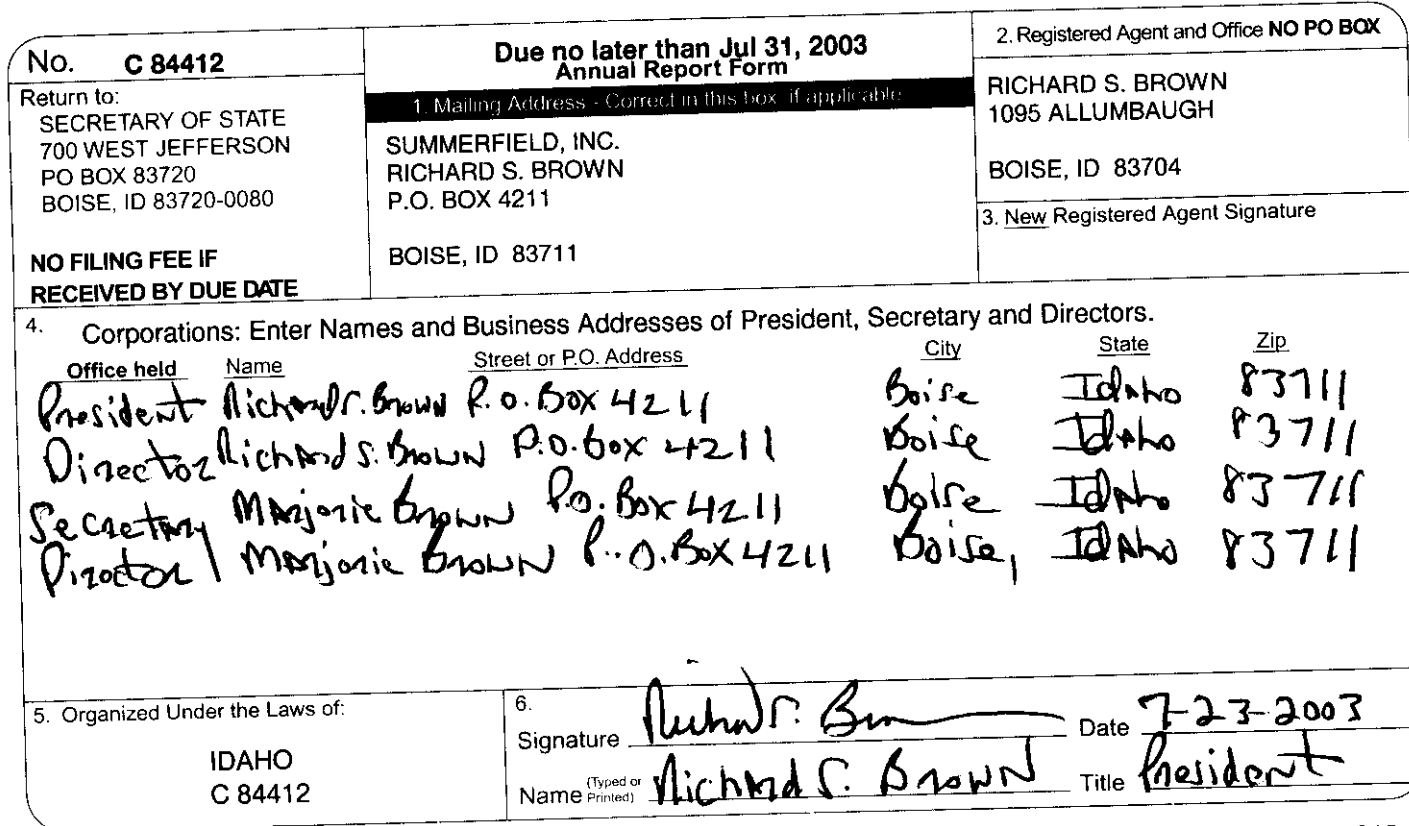 No. C 84412
Return to:
SECRETARY OF STATE
700 WEST JEFFERSON
PO BOX 83720
BOISE, ID 83720-0080
NO FILING FEE IF
RECEIVED BY DUE DATE
Due no later than Jul 31, 2003
Annual Report Form
1. Mailing Address - Correct in this box, if applicable
SUMMERFIELD, INC.
RICHARD S. BROWN
P.O. BOX 4211
BOISE, ID 83711
2. Registered Agent and Office NO PO BOX
RICHARD S. BROWN
1095 ALLUMBAUGH
BOISE, ID 83704
3. New Registered Agent Signature
4. Corporations: Enter Names and Business Addresses of President, Secretary and Directors.
Office held Name Street or P.O. Address City State Zip
President Richard S. Brown P.O. Box 4211 Boise Idaho 83711
Director Richard S. Brown P.O. Box 4211 Boise Idaho 83711
Secretary Marjorie Brown P.O. Box 4211 Boise Idaho 83711
Director Marjorie Brown P.O. Box 4211 Boise, Idaho 83711
5. Organized Under the Laws of:
IDAHO
C 84412
6.
Signature Richard S. Brown Date 7-23-2003
Name (Typed or Printed) Richard S. Brown Title President